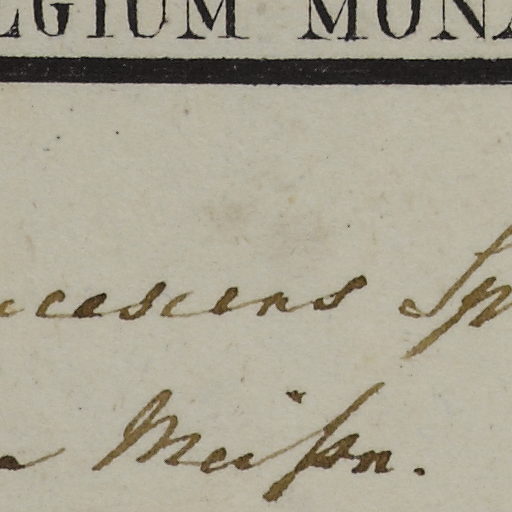 LEGIUM MONA
ucescens Sp
a Meiſsn.